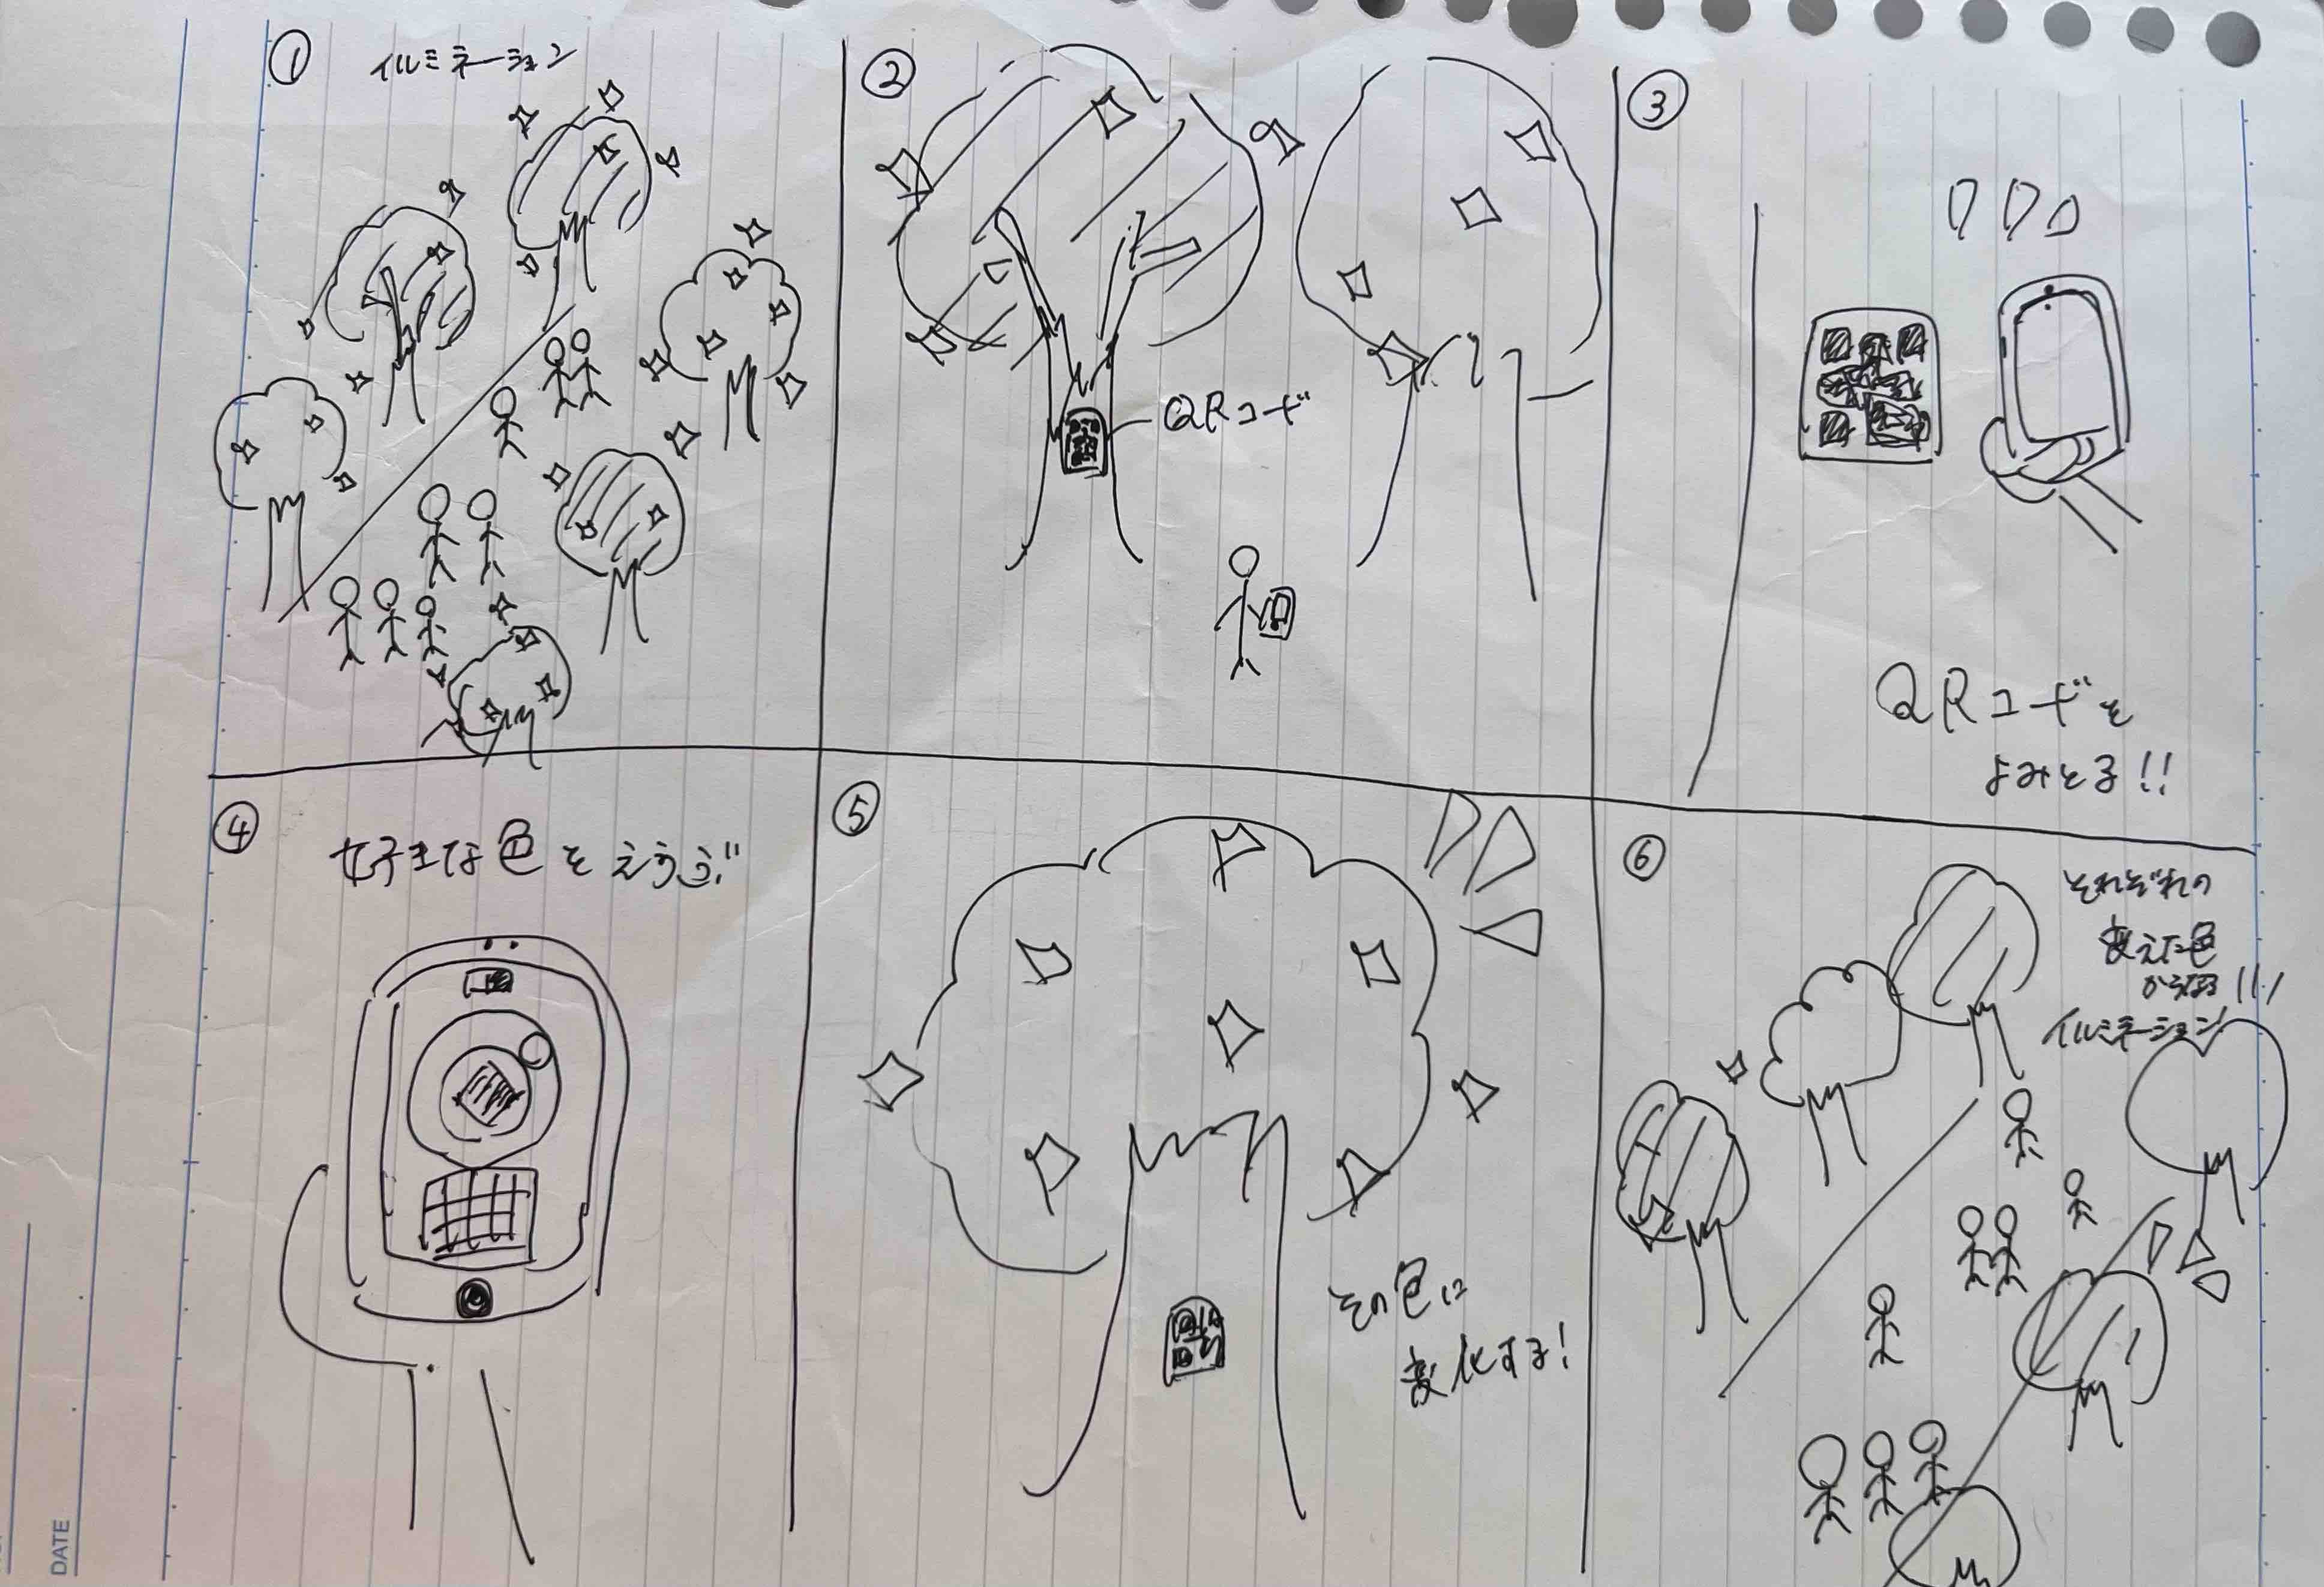 ①
イルミネーション
②
QRコード
③
QRコードを
よみとる!!
④
好きな色をえらぶ!
⑤
その色に
変化する!
⑥
それぞれの
変えた色
からなる!!!
イルミネーション
DATE